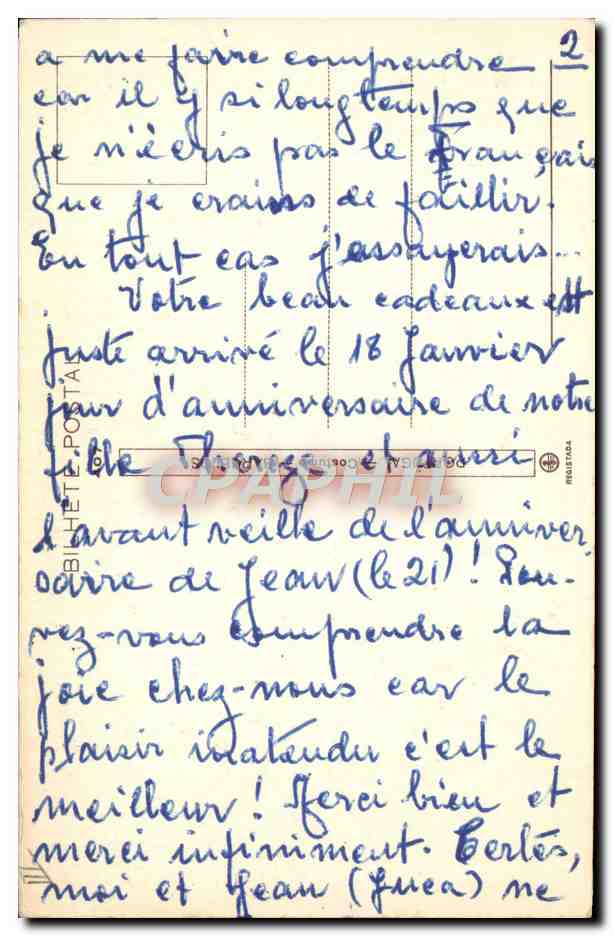 2
a me faire comprendre
car il y si longtemps que
je n'écris pas le Français
que je crains de faillir.
En tout cas j'assayerais...
Votre beau cadeaux est
juste arrivé le 18 Janvier
jour d'anniversaire de notre
fille et aussi
l'avant veille de l'anniver
saire de Jean (le 21)! Pou-
vez-vous comprendre la
joie chez-nous car le
plaisir inatendu c'est le
meilleur! Merci bien et
merci infiniment. Certes,
moi et Jean ne
BILHETE POSTAL
PORTUGAL
REGISTADA
CPAPHIL